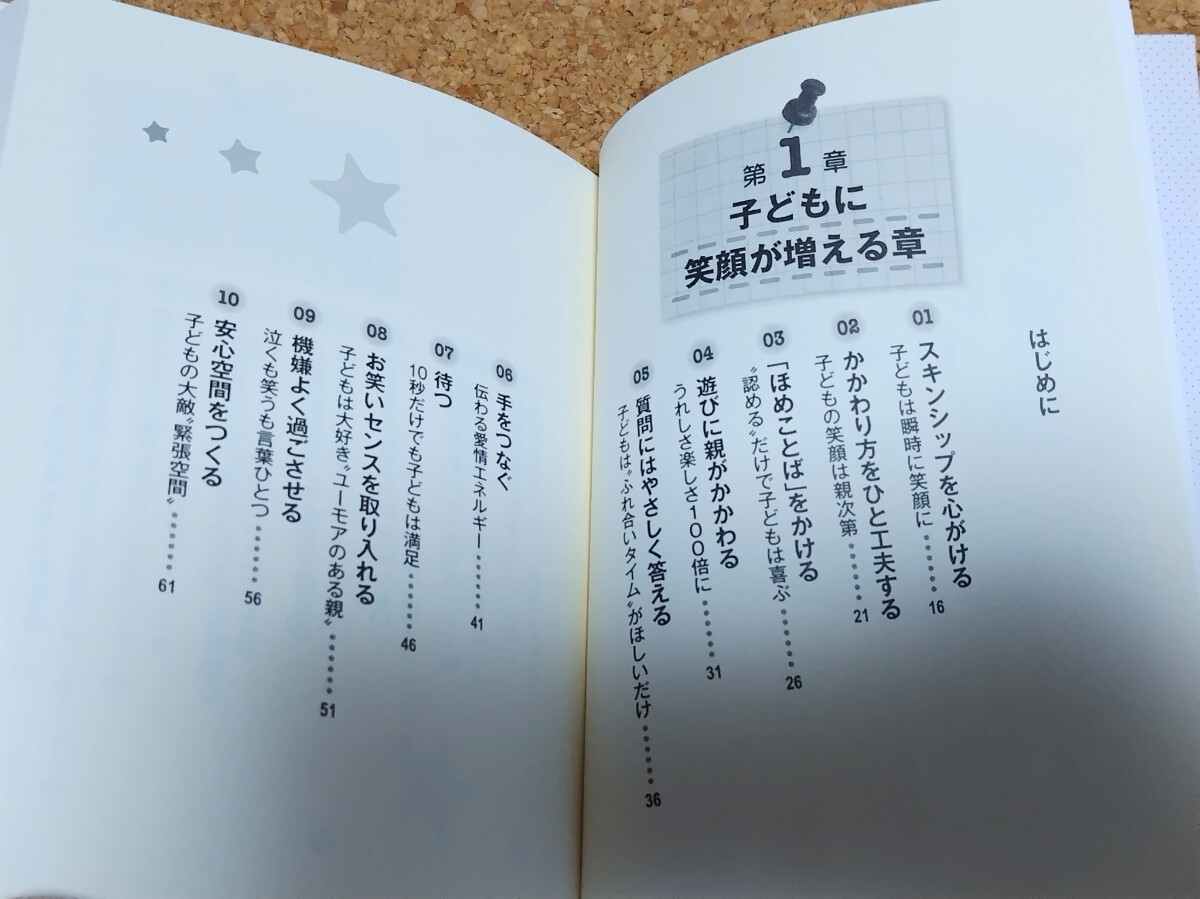 はじめに
第1章
子どもに
笑顔が増える章
01
スキンシップを心がける
子どもは瞬時に笑顔に・・・・・・16
02
かかわり方をひと工夫する
子どもの笑顔は親次第・・・・・・21
03
「ほめことば」をかける
〝認める〟だけで子どもは喜ぶ・・・・・・26
04
遊びに親がかかわる
うれしさ楽しさ100倍に・・・・・・31
05
質問にはやさしく答える
子どもは〝ふれ合いタイム〟がほしいだけ・・・・・・36
06
手をつなぐ
伝わる愛情エネルギー・・・・・・41
07
待つ
10秒だけでも子どもは満足・・・・・・46
08
お笑いセンスを取り入れる
子どもは大好き〝ユーモアのある親〟・・・・・・51
09
機嫌よく過ごさせる
泣くも笑うも言葉ひとつ・・・・・・56
10
安心空間をつくる
子どもの大敵〝緊張空間〟・・・・・・61